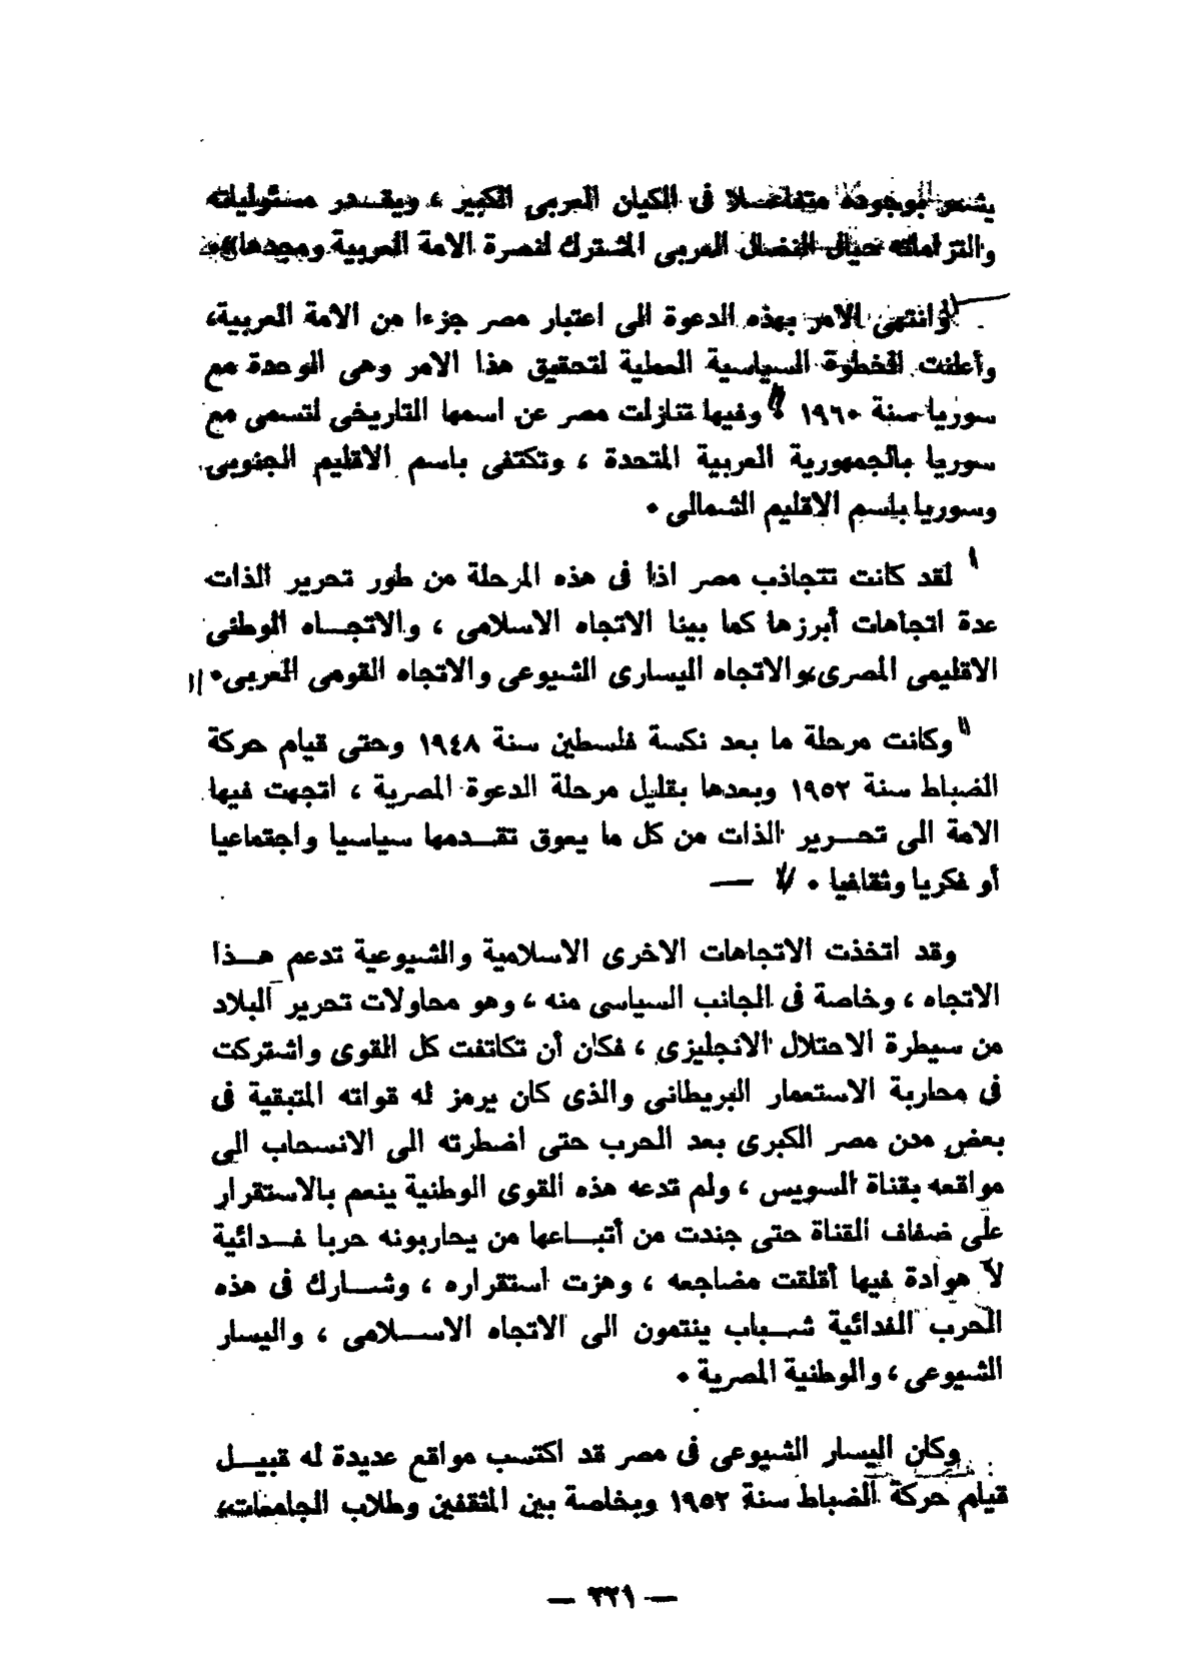 يشعر بوجوده متفاعلا فى الكيان العربى الكبير ، ويقـدر مسئولياته
والتزاماته حيال النضال العربى المشترك لنصرة الامة العربية ومجدها» •
وانتهى الامر بهذه الدعوة الى اعتبار مصر جزءا من الامة العربية،
وأعلنت الخطوة السياسية العملية لتحقيق هذا الامر وهى الوحدة مع
سوريا سنة ١٩٦٠ • وفيها تنازلت مصر عن اسمها التاريخى لتسمى مع
سوريا بالجمهورية العربية المتحدة ، وتكتفى باسم الاقليم الجنوبى
وسوريا باسم الاقليم الشمالى •
لقد كانت تتجاذب مصر اذا فى هذه المرحلة من طور تحرير الذات
عدة اتجاهات أبرزها كما بينا الاتجاه الاسلامى ، والاتجـاه الوطنى
الاقليمى المصرى، والاتجاه اليسارى الشيوعى والاتجاه القومى العربى•
وكانت مرحلة ما بعد نكسة فلسطين سنة ١٩٤٨ وحتى قيام حركة
الضباط سنة ١٩٥٢ وبعدها بقليل مرحلة الدعوة المصرية ، اتجهت فيها
الامة الى تحـرير الذات من كل ما يعوق تقـدمها سياسيا واجتماعيا
أو فكريا وثقافيا •
وقد اتخذت الاتجاهات الاخرى الاسلامية والشيوعية تدعم هـذا
الاتجاه ، وخاصة فى الجانب السياسى منه ، وهو محاولات تحرير البلاد
من سيطرة الاحتلال الانجليزى ، فكان أن تكاتفت كل القوى واشتركت
فى محاربة الاستعمار البريطانى والذى كان يرمز له قواته المتبقية فى
بعض مدن مصر الكبرى بعد الحرب حتى اضطرته الى الانسحاب الى
مواقعه بقناة السويس ، ولم تدعه هذه القوى الوطنية ينعم بالاستقرار
على ضفاف القناة حتى جندت من أتبـاعها من يحاربونه حربا فـدائية
لا هوادة فيها أقلقت مضاجعه ، وهزت استقراره ، وشـارك فى هذه
الحرب الفدائية شـباب ينتمون الى الاتجاه الاسـلامى ، واليسار
الشيوعى ، والوطنية المصرية •
وكان اليسار الشيوعى فى مصر قد اكتسب مواقع عديدة له قبيـل
قيام حركة الضباط سنة ١٩٥٢ وبخاصة بين المثقفين وطلاب الجامعات،
— ٣٢١ —